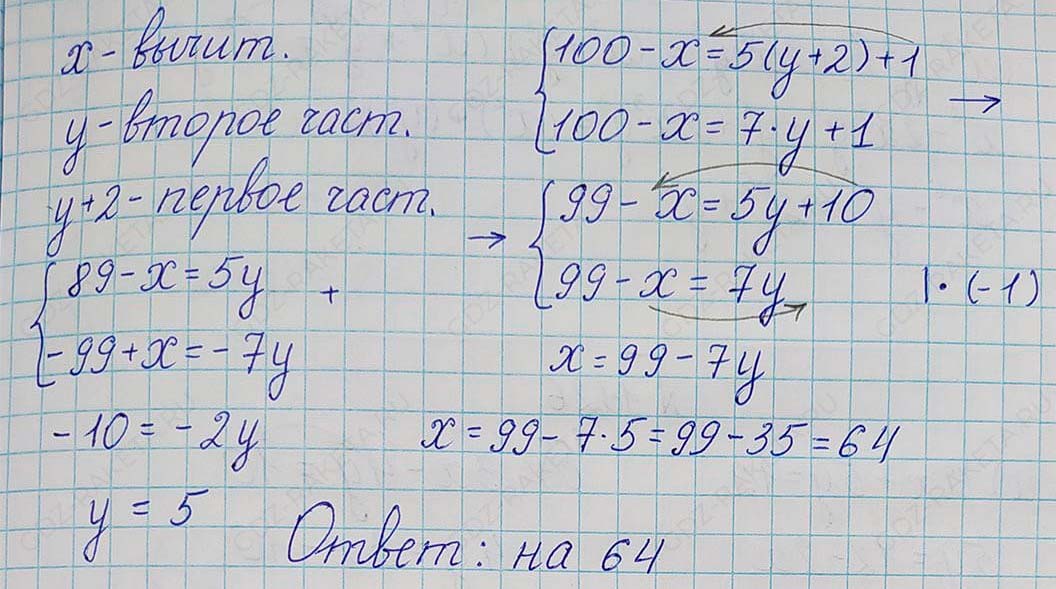 x - вычит.
y - второе част.
y+2 - первое част.
100 - x = 5(y+2)+1
100 - x = 7·y+1
→
→
99 - x = 5y+10
99 - x = 7y |·(-1)
89 - x = 5y +
-99+x = -7y
-10 = -2y
y = 5
x = 99 - 7y
x = 99 - 7·5 = 99 - 35 = 64
Ответ: на 64